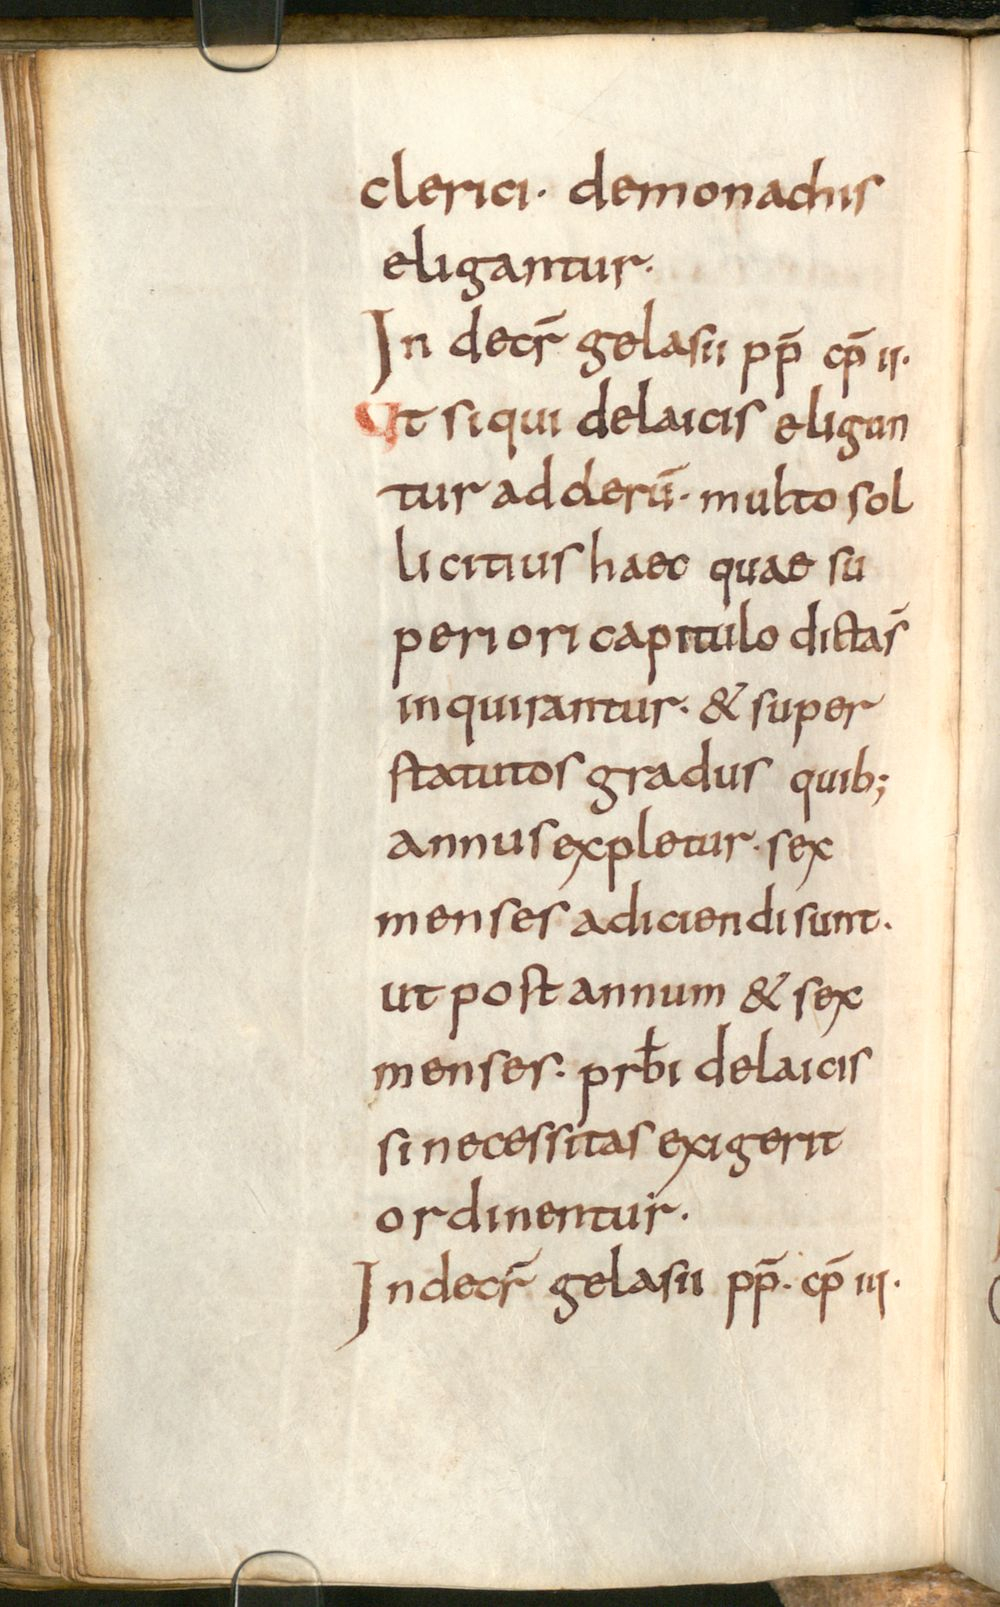 clerici· demonachis
eligantur·
In decr̄ gelasii pp̄ cp̄ ii·
Ut siqui delaicis eligun
tur adclerū· multo sol
licitius haec quae su
periori capitulo dictas̄
inquirantur· & super
statutos gradus quib;
annus expletur· sex
menses adiciendi sunt·
ut post annum & sex
menses· prb̄i delaicis
si necessitas exigerit
ordinentur·
In decr̄ gelasii pp̄· cp̄ iii·